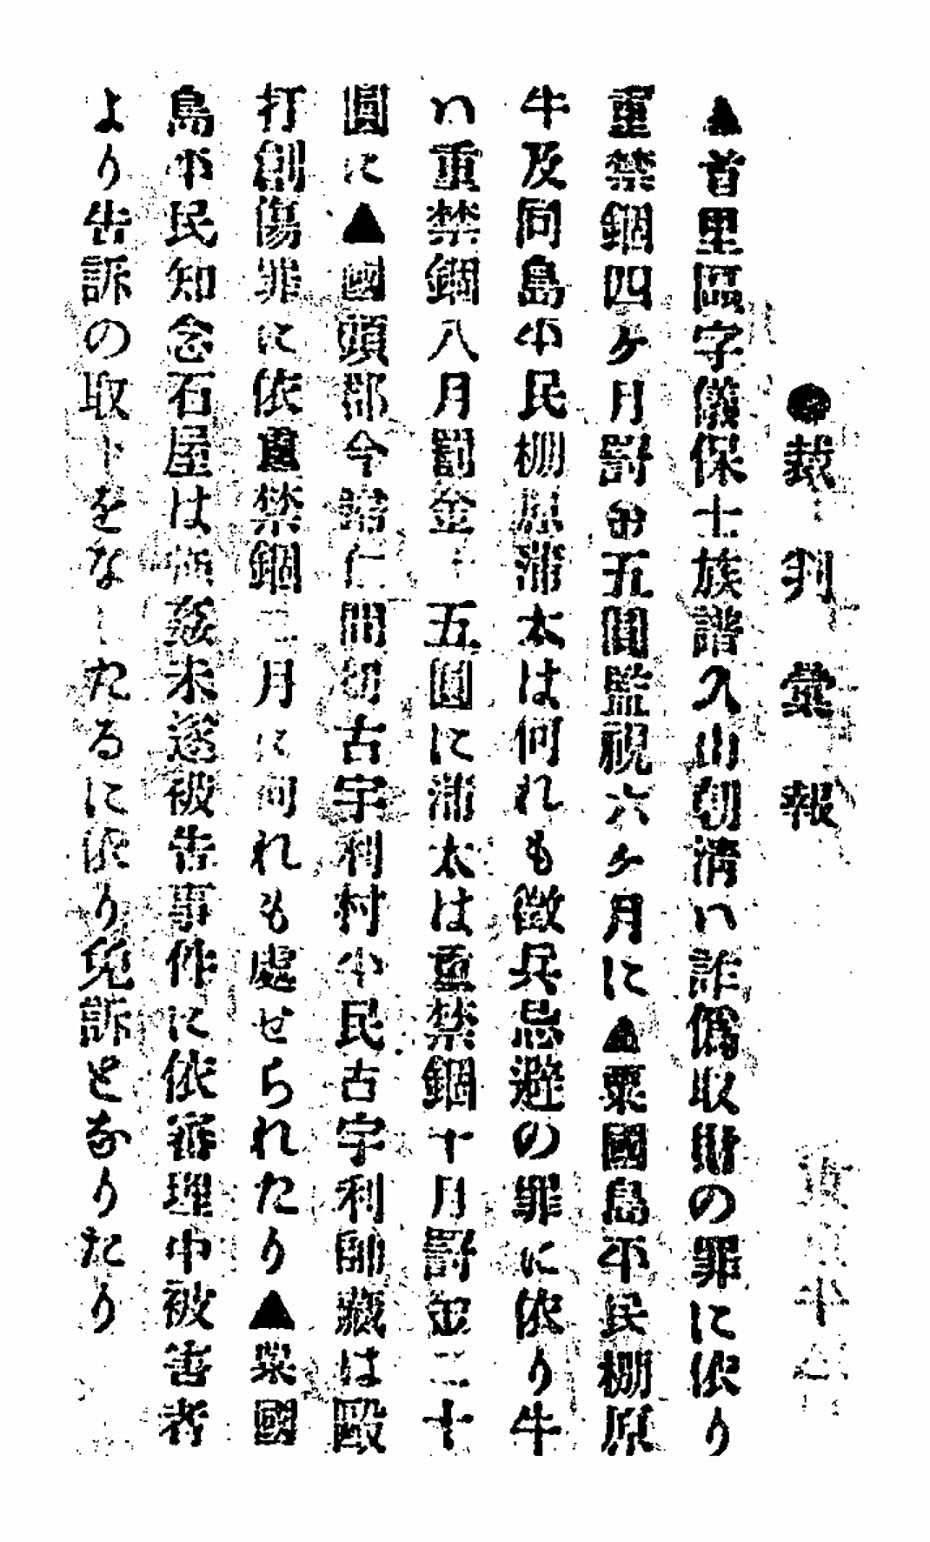 ●裁判彙報
▲首里區字儀保士族譜久山朝淸ハ詐僞取財の罪に依り
重禁錮四ヶ月罰金五圓監視六ヶ月に▲粟國島平民棚原
牛及同島平民棚原蒲太は何れも徵兵忌避の罪に依り牛
ハ重禁錮八月罰金 五圓に蒲太は重禁錮十月罰金二十
圓に▲國頭郡今歸仁間切古宇利村平民古宇利師藏は毆
打創傷罪に依重禁錮二月に何れも處せられたり▲粟國
島平民知念石屋は强姦未遂被吿事件に依審理中被害者
より吿訴の取下をなしたるに依り免訴となりたり